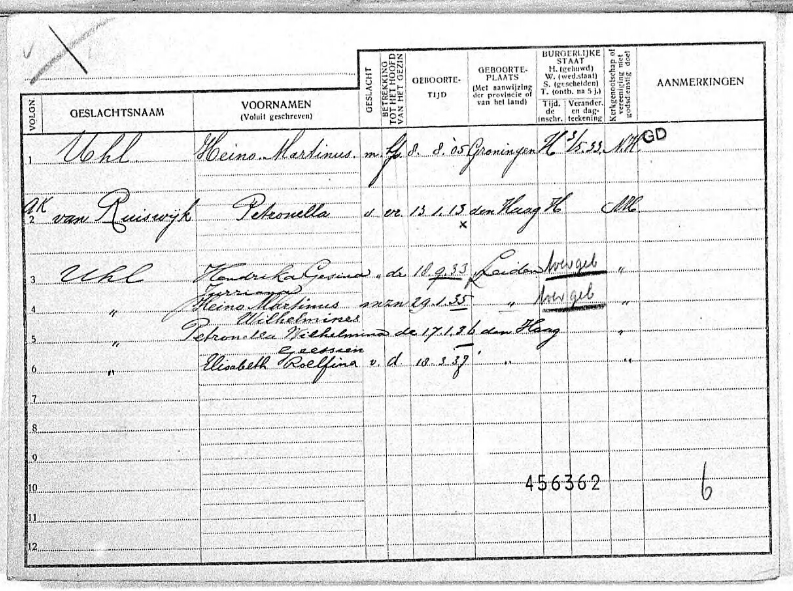 VOLGN.
GESLACHTSNAAM
VOORNAMEN
(Voluit geschreven)
GESLACHT
BETREKKING
TOT HET HOOFD
VAN HET GEZIN
GEBOORTE-
TIJD
GEBOORTE-
PLAATS
(Met aanwijzing
der provincie of
van het land)
BURGERLIJKE
STAAT
H. (gehuwd)
W. (wed.staat)
S. (gescheiden)
T. (ontb. na 5 j.)
Tijd.
de
inschr.
Verander.
en dag-
teekening
Kerkgenootschap of
vereeniging met
godsdienstig doel
AANMERKINGEN
1 Uhl Heino Martinus m. 8. 8. '05 Groningen H 3/5.33 N.H. GD
2 van Ruiswijk Petronella v vr. 13.1.13 den Haag H NH
x
3 Uhl Hendrika Gesina " dr 18.9.33 Leiden "
Jurriana
4 " Heino Martinus m zn 29.1.35 " "
Wilhelmines
5 " Petronella Wilhelmina 17.1.36 den Haag "
6 " Elisabeth Roelfina v. d 18.3.39 " "
7
8
9
10
456362
6
11
12